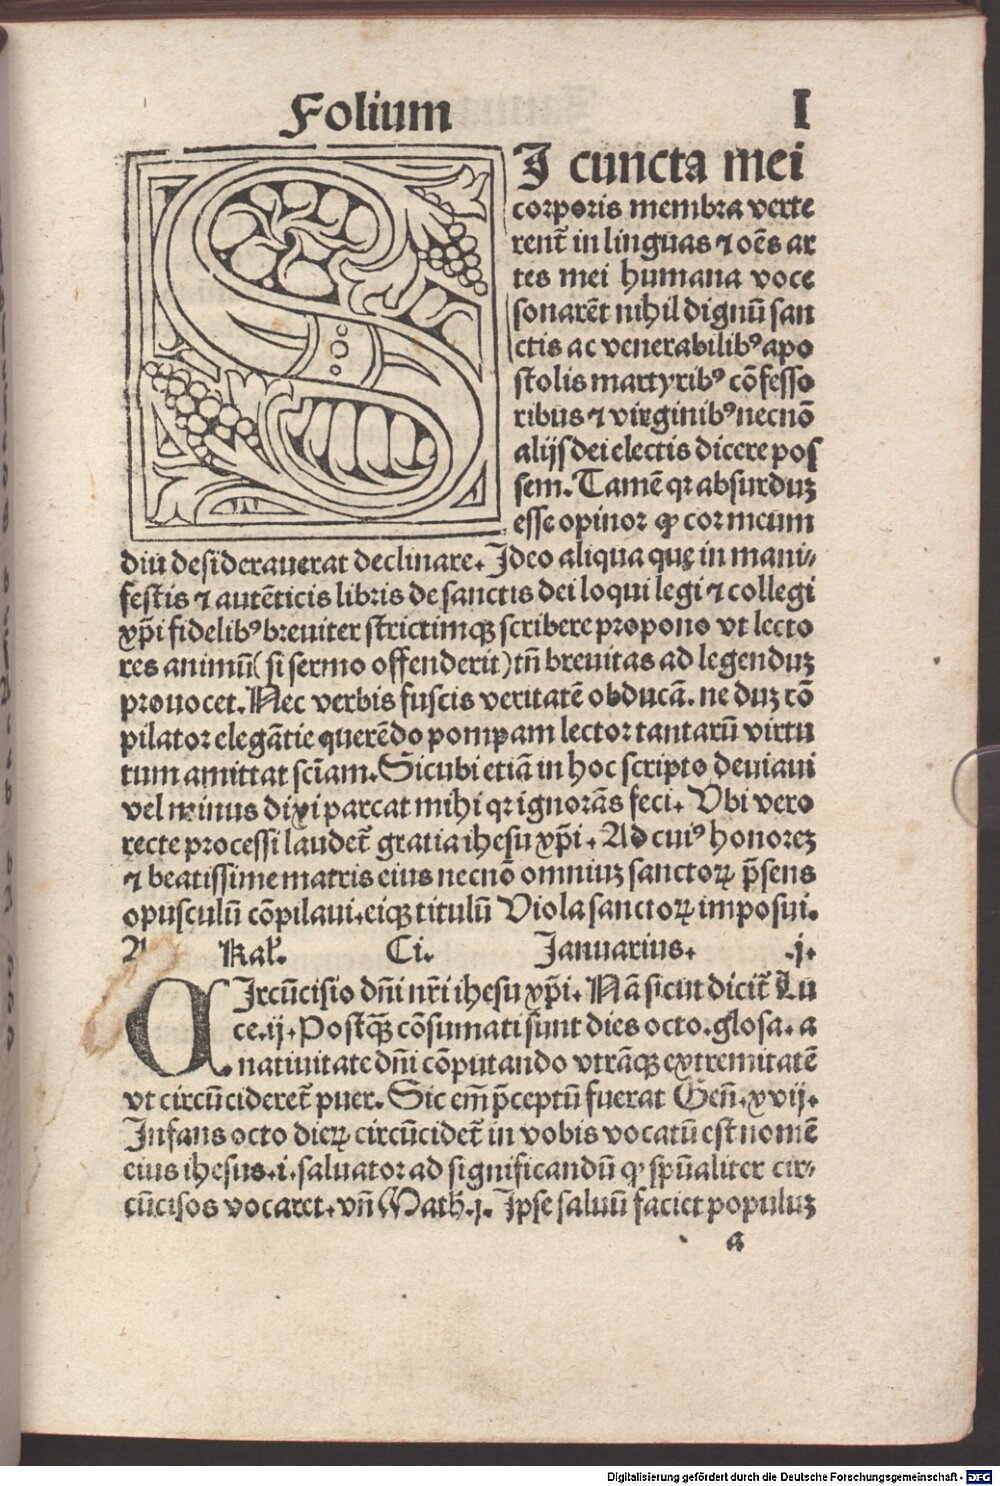 Folium I
SJ cuncta mei
corporis membra verte
rent᷑ in linguas ⁊ oēs ar
tes mei humana voce
sonarēt nihil dignū san
ctis ac venerabilibꝰ apo
stolis martyribꝰ cōfesso
ribus ⁊ virginibꝰ necnō
alijs dei electis dicere pos
sem. Tamē qꝛ absurduꝫ
esse opinor ꝙ cor meum
diu desiderauerat declinare. Ideo aliqua quę in mani⸗
festis ⁊ autēticis libris de sanctis dei loqui legi ⁊ collegi
xp̄i fidelibꝰ breuiter strictimqꝫ scribere propono vt lecto
res animū (si sermo offenderit) tn̄ breuitas ad legenduꝫ
prouocet. Nec verbis fuscis veritatē obducā. ne duꝫ cō
pilator elegātie querēdo pompam lector tantarū virtu
tum amittat sciam̄. Sicubi etiā in hoc scripto deuiaui
vel minus dixi parcat mihi qꝛ ignorās feci. Vbi vero
recte processi laudet᷑ gratia ihesu xp̄i. Ad cuiꝰ honoreꝫ
⁊ beatissime matris eius necnō omniuꝫ sanctoꝝ p̄sens
opusculū cōpilaui. eiqꝫ titulū Viola sanctoꝝ imposui.
A Kal̄. Ci. Januarius. .j.
CIrcūcisio dn̄i nr̄i ihesu xp̄i. Nā sicut dicit᷑ Lu
ce .ij. Postqꝫ̄ cōsumati sunt dies octo. glosa. a
natiuitate dn̄i cōputando vtrāqꝫ extremitatē
vt circūcideret᷑ puer. Sic em̄ p̄ceptū fuerat Geñ. xvij.
Infans octo dieꝝ circūcidet᷑ in vobis vocatū est nomē
eius ihesus .i. saluator ad significandū ꝙ sp̄ualiter cir⸗
cūcisos vocaret. vn̄ Math. j. Ipse saluū faciet populuꝫ
a
Digitalisierung gefördert durch die Deutsche Forschungsgemeinschaft - DFG